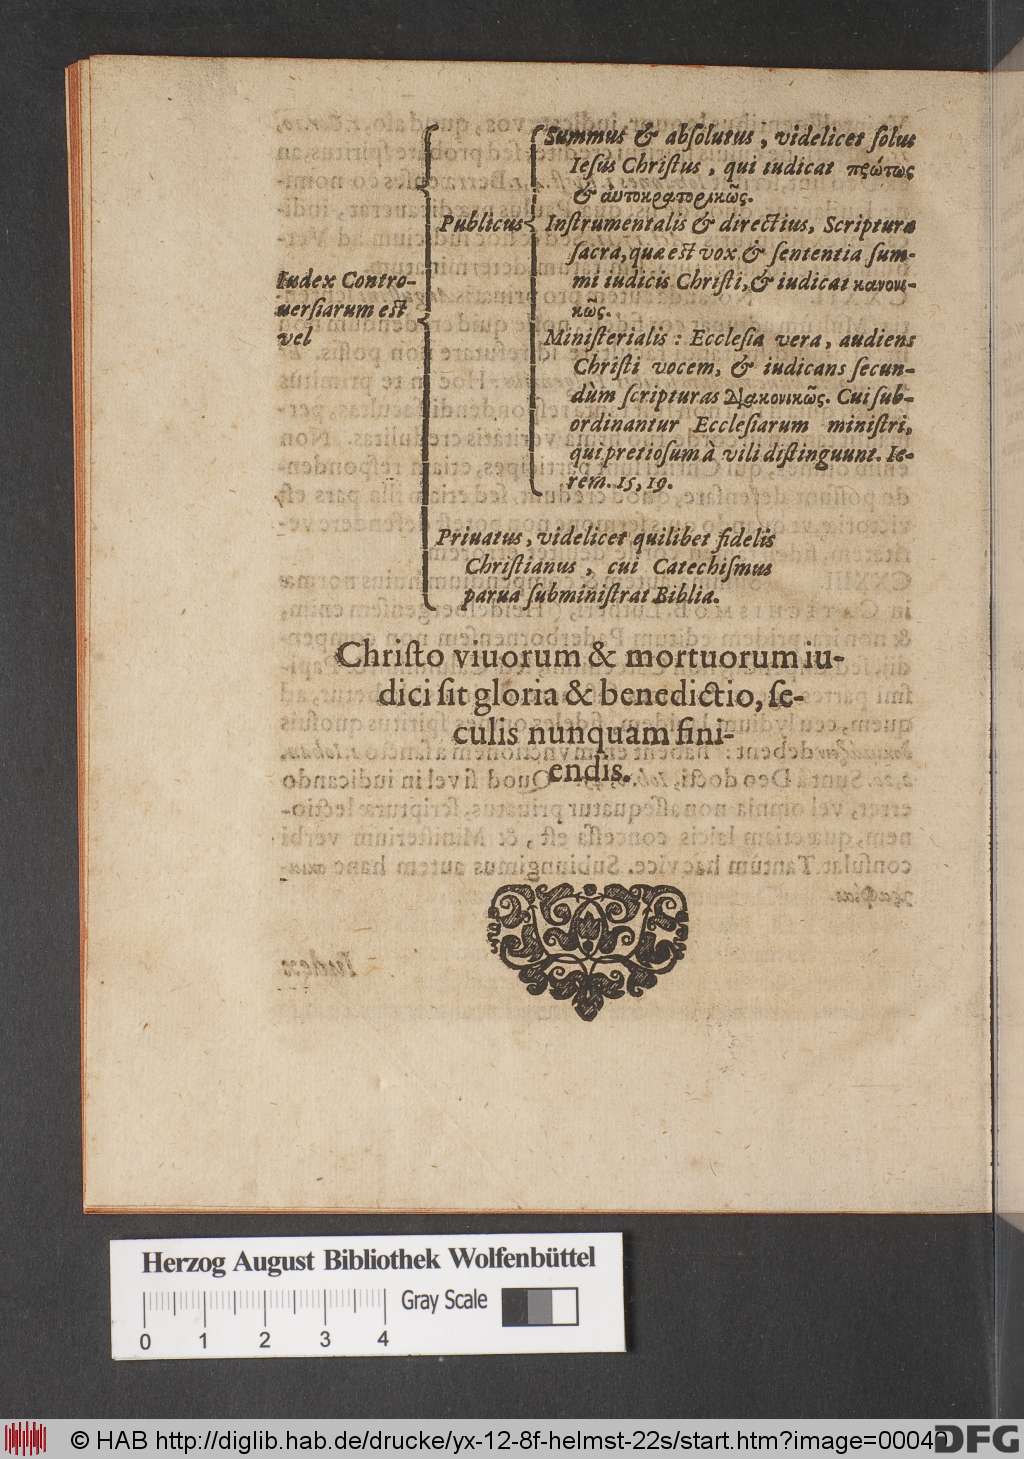 Iudex Contro-
uersiarum est
vel
Publicus
Summus & absolutus, videlicet solus
Iesus Christus, qui iudicat πρώτως
& αυτοκρατορικῶς.
Instrumentalis & directius, Scriptura
sacra, quæ est vox & sententia sum-
mi iudicis Christi, & iudicat κανονι-
κῶς.
Ministerialis: Ecclesia vera, audiens
Christi vocem, & iudicans secun-
dùm scripturas Διακονικῶς. Cui sub-
ordinantur Ecclesiarum ministri,
qui pretiosum à vili distinguunt. Ie-
rem. 15, 19.
Priuatus, videlicet quilibet fidelis
Christianus, cui Catechismus
parua subministrat Biblia.
Christo viuorum & mortuorum iu-
dici sit gloria & benedictio, se-
culis nunquam fini-
endis.
Herzog August Bibliothek Wolfenbüttel
Gray Scale
0 1 2 3 4
© HAB http://diglib.hab.de/drucke/yx-12-8f-helmst-22s/start.htm?image=00040
DFG